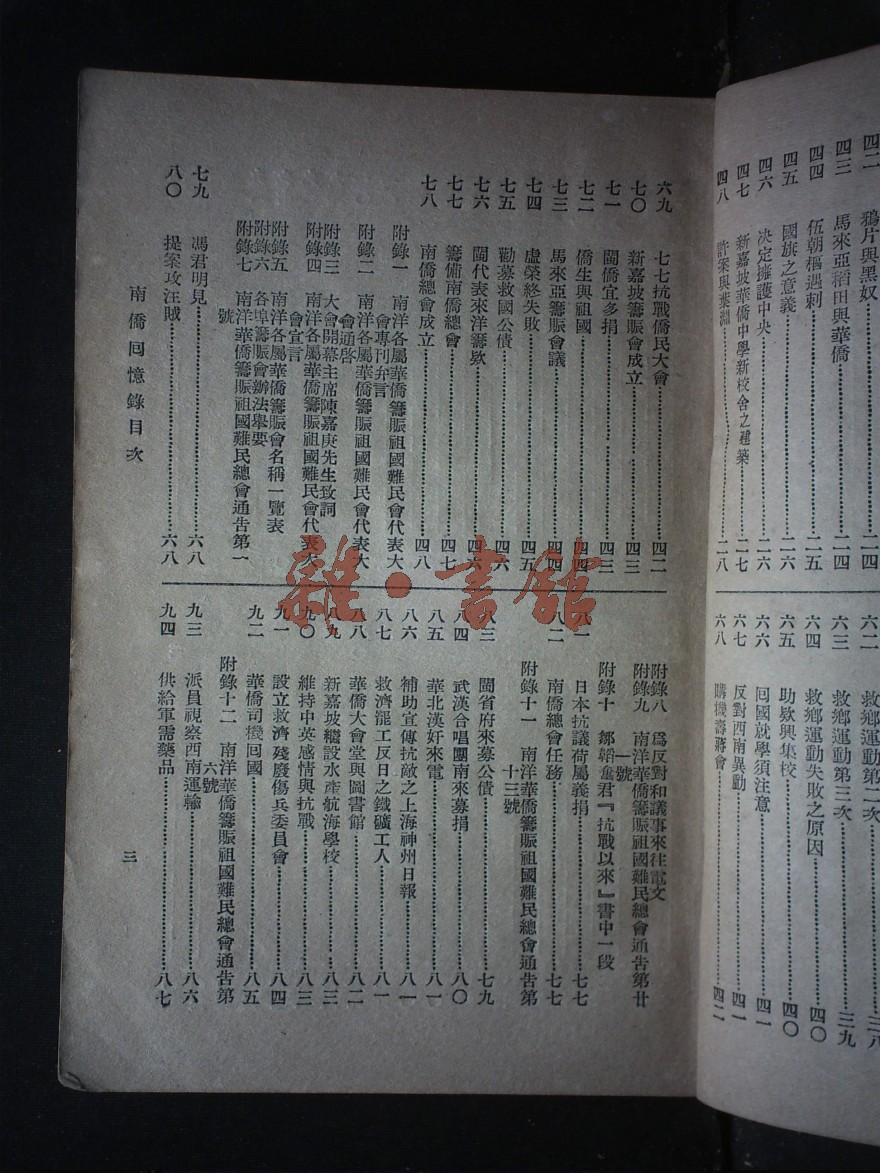 四二 鴉片與黑奴……二四
四三 馬來亞稻田與華僑……二四
四四 伍朝樞遇刺……二五
四五 國旗之意義……二六
四六 決定擁護中央……二六
四七 新嘉坡華僑中學新校舍之建築……二七
四八 許案與葉淵……二八
六二 救鄉運動第二次……三八
六三 救鄉運動第三次……三九
六四 救鄉運動失敗之原因……四〇
六五 助欵興集校……四〇
六六 回國就學須注意……四一
六七 反對西南異動……四一
六八 購機壽蔣會……四二
六九 七七抗戰僑民大會……四二
七〇 新嘉坡籌賑會成立……四三
七一 閩僑宜多捐……四三
七二 僑生與祖國……四四
七三 馬來亞籌賑會議……四四
七四 虛榮終失敗……四五
七五 勸募救國公債……四六
七六 閩代表來洋籌欵……四六
七七 籌備南僑總會……四七
七八 南僑總會成立……四八
附錄一 南洋各屬華僑籌賑祖國難民會代表大
會專刊弁言
附錄二 南洋各屬華僑籌賑祖國難民會代表大
會通啓
附錄三 大會開幕主席陳嘉庚先生致詞
附錄四 南洋各屬華僑籌賑祖國難民會代表大
會宣言
附錄五 南洋各屬華僑籌賑會名稱一覽表
附錄六 各埠籌賑會辦法舉要
附錄七 南洋華僑籌賑祖國難民總會通告第一
號
七九 馮君明見……六八
八〇 提案攻汪賊……六八
附錄八 爲反對和議事來往電文
附錄九 南洋華僑籌賑祖國難民總會通告第廿
一號
附錄十 鄒韜奮君『抗戰以來』書中一段
八一 日本抗議荷屬義捐……七七
八二 南僑總會任務……七七
附錄十一 南洋華僑籌賑祖國難民總會通告第
十三號
八三 閩省府來募公債……七九
八四 武漢合唱團南來募捐……八〇
八五 華北漢奸來電……八一
八六 補助宣傳抗敵之上海神州日報……八一
八七 救濟罷工反日之鐵礦工人……八一
八八 華僑大會堂與圖書館……八二
八九 新嘉坡繼設水產航海學校……八三
九〇 維持中英感情與抗戰……八三
九一 設立救濟殘廢傷兵委員會……八四
九二 華僑司機回國……八五
附錄十二 南洋華僑籌賑祖國難民總會通告第
六號
九三 派員視察西南運輸……八六
九四 供給軍需藥品……八七
南僑回憶錄目次
三
雜·書館